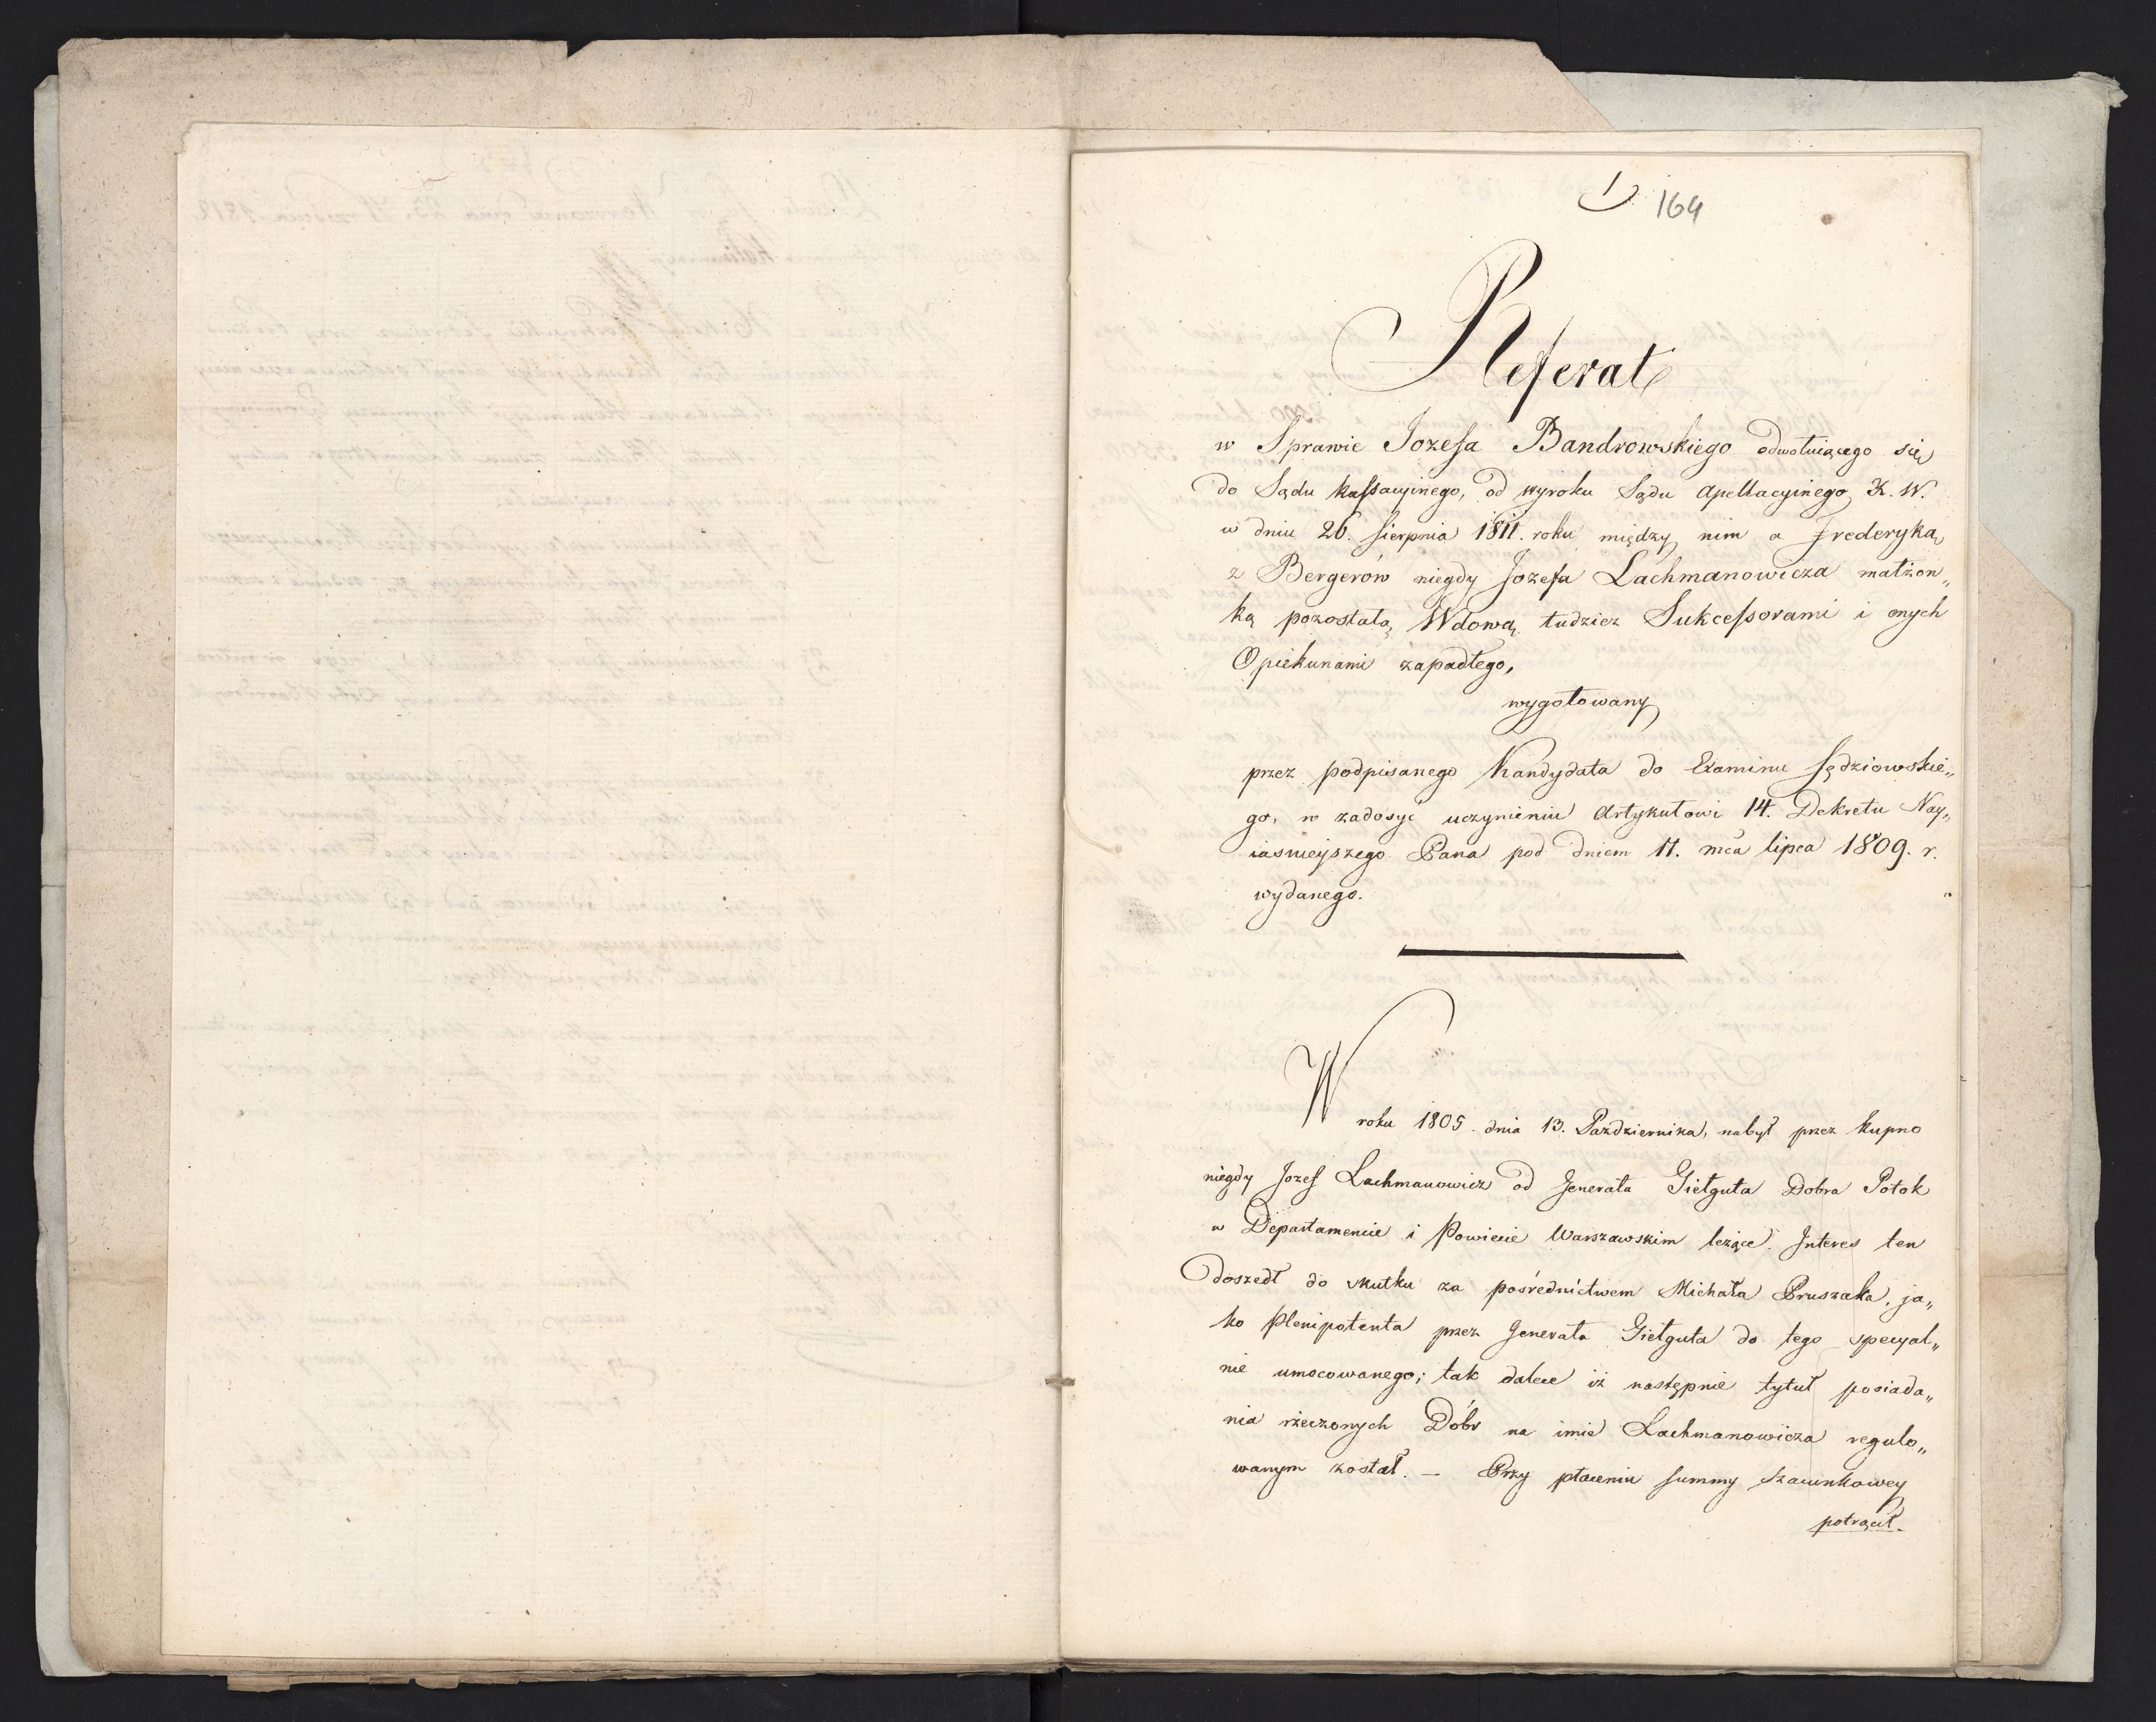 1
164
Referat
w Sprawie Jozefa Bandrowskiego odwołuiącego się
do Sądu Kassacyinego, od wyroku Sądu Apellacyinego X. W.
w dniu 26. Sierpnia 1811. roku między nim a Fryderyką
z Bergerów niegdy Jozefa Lachmanowicza małżon„
ką pozostałą Wdową tudzież Sukcessorami i onych
Opiekunami zapadłego,
wygotowany
przez podpisanego Kandydata do Examinu Sędziowskie„
go, w zadosyć uczynieniu Artykułowi 14. Dekretu Nay„
iaśnieyszego Pana pod dniem 11. mca lipca 1809. r.
wydanego.
W roku 1805. dnia 13. Października, nabył przez kupno
niegdy Jozef Lachmanowicz od Jenerała Giełguta Dobra Potok
w Departamencie i Powiecie Warszawskim leżące. Interes ten
doszedł do skutku za pośrednictwem Michała Pruszaka, ja„
ko Plenipotenta przez Generała Giełguta do tego specyal„
nie umocowanego; tak dalece iż następnie tytuł posiada„
nia rzeczonych Dóbr na imie Lachmanowicza regulo„
wanym został. — Przy płaceniu summy szacunkowey
potrącił.